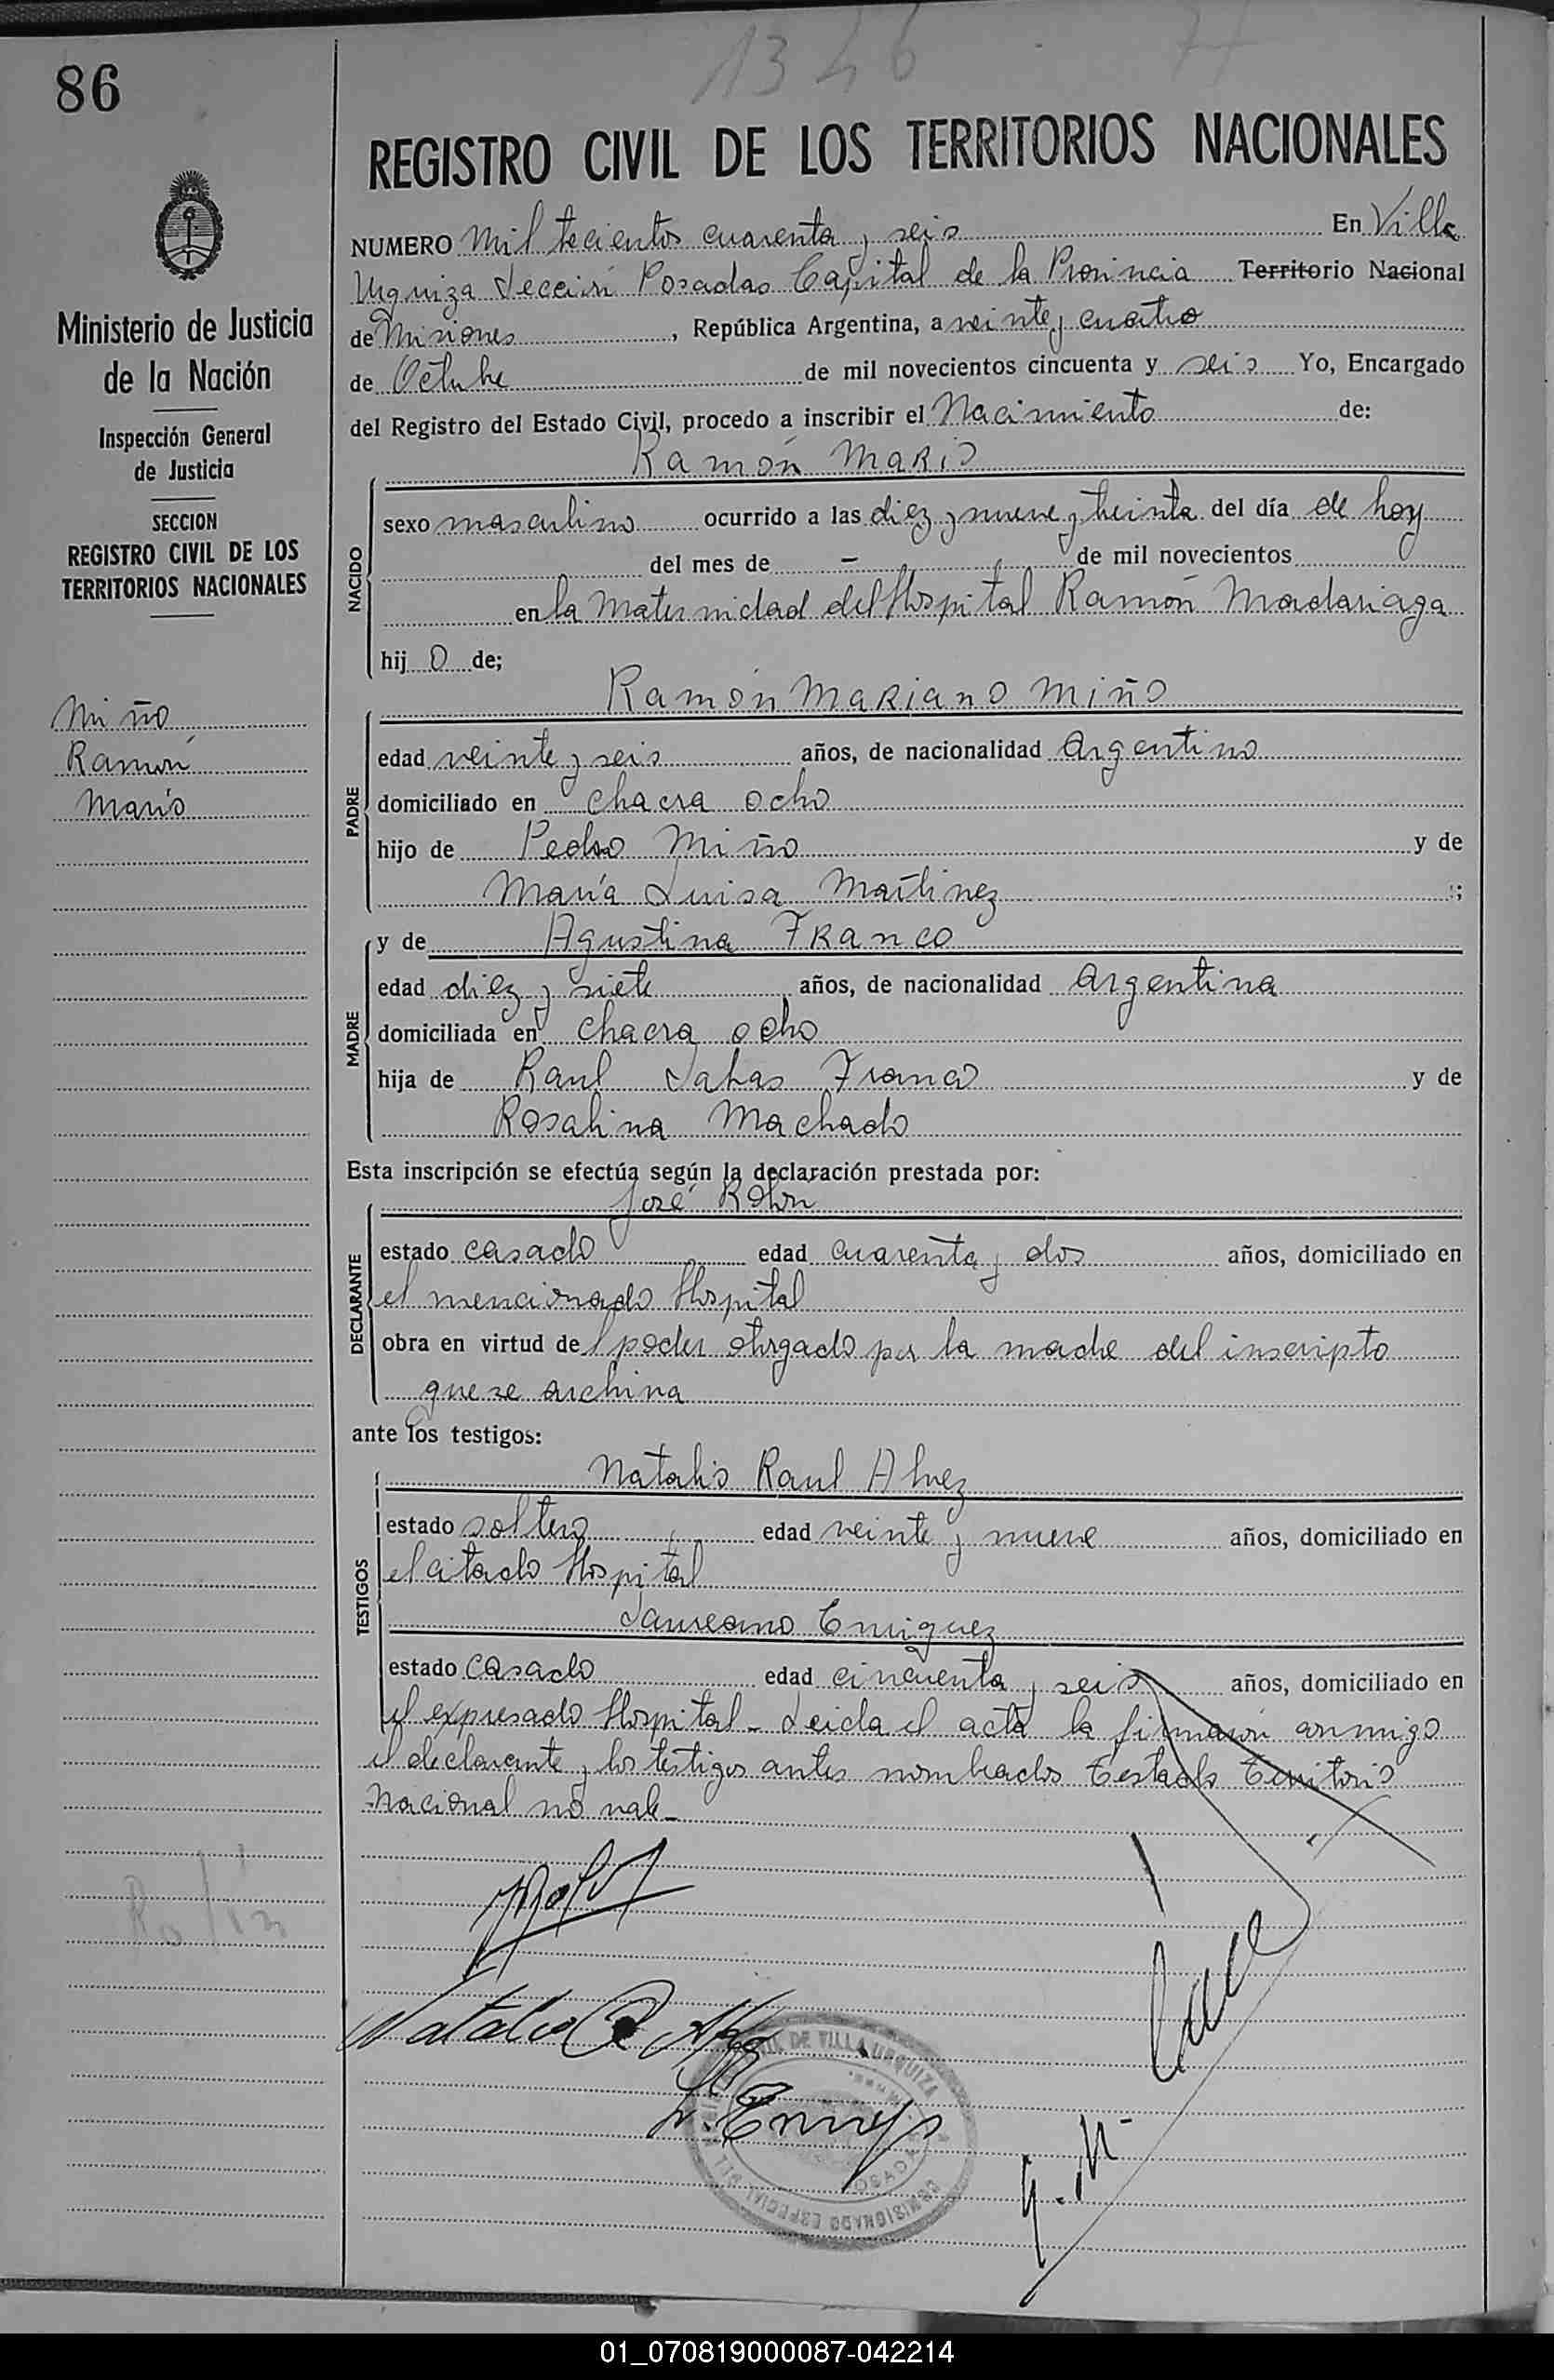 1346
86
REGISTRO CIVIL DE LOS TERRITORIOS NACIONALES
NUMERO Mil trecientos cuarenta y seis En Villa
Urquiza Sección Posadas Capital de la Provincia Territorio Nacional
de Misiones, República Argentina, a veinte y cuatro
de Octubre de mil novecientos cincuenta y seis Yo, Encargado
del Registro del Estado Civil, procedo a inscribir el Nacimiento de:
Ramón Mario
NACIDO
sexo masculino ocurrido a las diez y nueve y treinta del día de hoy
del mes de - de mil novecientos
en la Maternidad del Hospital Ramón Madariaga
hij o de;
Ramón Mariano Miño
PADRE
edad veinte y seis años, de nacionalidad Argentino
domiciliado en chacra ocho
hijo de Pedro Miño y de
María Luisa Martinez ;
MADRE
y de Agustina Franco
edad diez y siete años, de nacionalidad Argentina
domiciliada en chacra ocho
hija de Raul Franco y de
Rosalina Machado
Esta inscripción se efectúa según la declaración prestada por:
José Rolon
DECLARANTE
estado casado edad cuarenta y dos años, domiciliado en
el mencionado Hospital
obra en virtud del poder otorgado por la madre del inscripto
que se archiva
ante los testigos:
Natalio Raul Alvez
TESTIGOS
estado soltero edad veinte y nueve años, domiciliado en
el citado Hospital
Laureano Enriquez
estado casado edad cincuenta y seis años, domiciliado en
el expresado Hospital - Leida el acta la firmaron conmigo
el declarante y los testigos antes nombrados Testado Territorio
Nacional no vale -
Ministerio de Justicia
de la Nación
Inspección General
de Justicia
SECCION
REGISTRO CIVIL DE LOS
TERRITORIOS NACIONALES
Miño
Ramón
Mario
DE VILLA URQUIZA
COMISIONADO ESPECIAL DEL
POSADAS
01_070819000087-042214